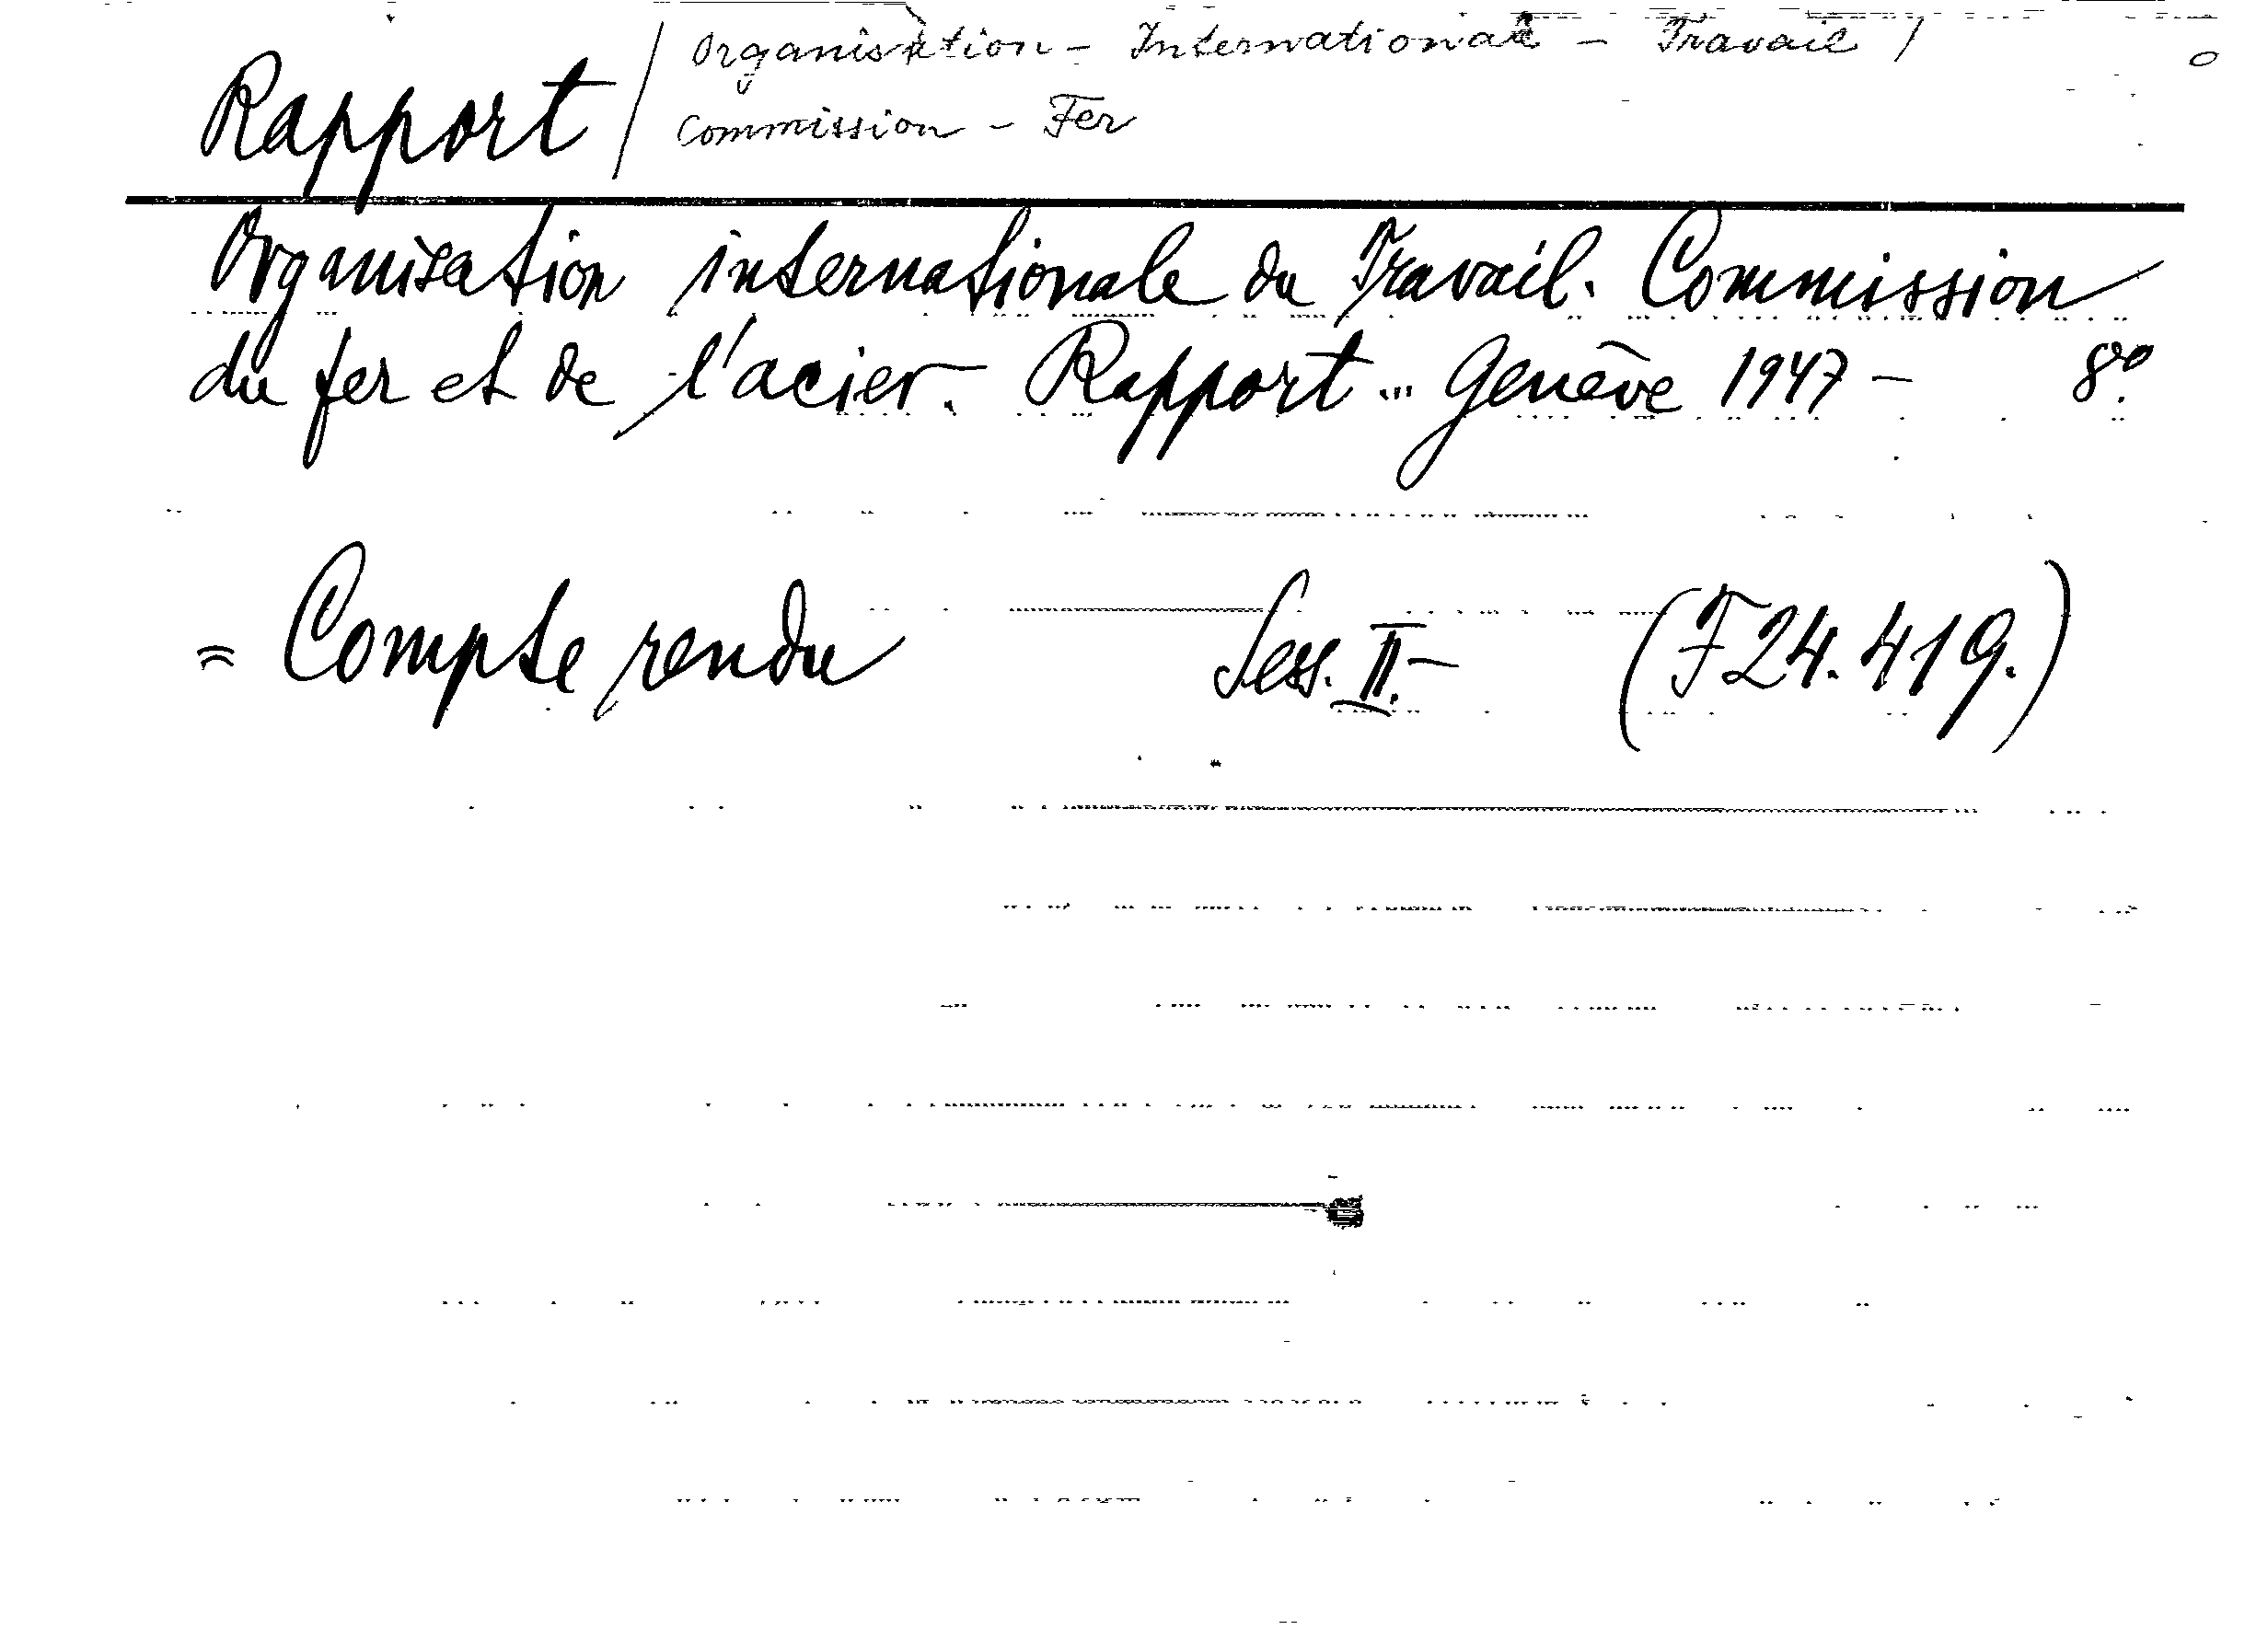 Rapport / Organisation - International - Travail /
Commission - Fer
Organisation internationale du Travail. Commission
du fer et de l'acier. Rapport ... Genève 1947 - 8°.
= Compte rendu Sess. II. - (F24.419.)